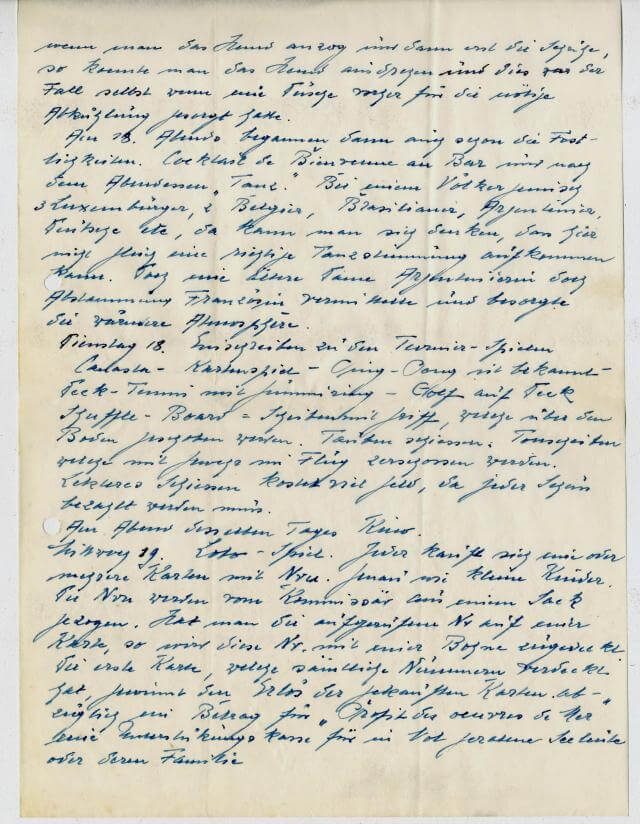 wenn man das Hemd anzog und dann erst die Schuhe,
so konnte man das Hemd auswringen und dies war der
Fall selbst wenn eine Dusche vorher für die nötige
Abkühlung gesorgt hatte.
Am 18. Abends begannen dann auch schon die Fest-
lichkeiten. Cocktail de Bienvenue an Bar und nach
dem Abendessen „Tanz." Bei einem Völkergemisch
3 Luxemburger, 2 Belgier, Brasilianer, Argentinier,
Deutsche etc, da kann man sich denken, das hier
nicht gleich eine richtige Tanzstimmung aufkommen
kann. Doch eine ältere Dame Argentinierin doch
Abstammung Französin vermittelte und besorgte
die wärmere Atmosphäre.
Dienstag 18. Einschreiben zu den Turnier-Spielen
Canasta - Kartenspiel - Ping-Pong ist bekannt -
Deck-Tennis mit Gummiring - Golf auf Deck
Shuffle-Board = Scheiben mit Griff, welche über den
Boden geschoben werden. Tauben schiessen: Tonscheiben
welche mit Gewehr im Flug zerschossen werden.
Letzteres Schiessen kostet viel Geld, da jeder Schuss
bezahlt werden muss.
Am Abend desselben Tages Kino.
Mittwoch 19. Loto-Spiel. Jeder kauft sich eine oder
mehrere Karten mit Nrn. Genau wie kleine Kinder.
Die Nrn werden vom Kommissär aus einem Sack
gezogen. Hat man die aufgerufene Nr auf einer
Karte, so wird diese Nr. mit einer Bohne zugedeckt
Die erste Karte, welche sämtliche Nummern verdeckt
hat, gewinnt den Erlös der gekauften Karten. ab-
züglich ein Betrag für „Profit des oeuvres de Mer"
eine Unterstützungskasse für in Not geratene Seeleute
oder deren Familie